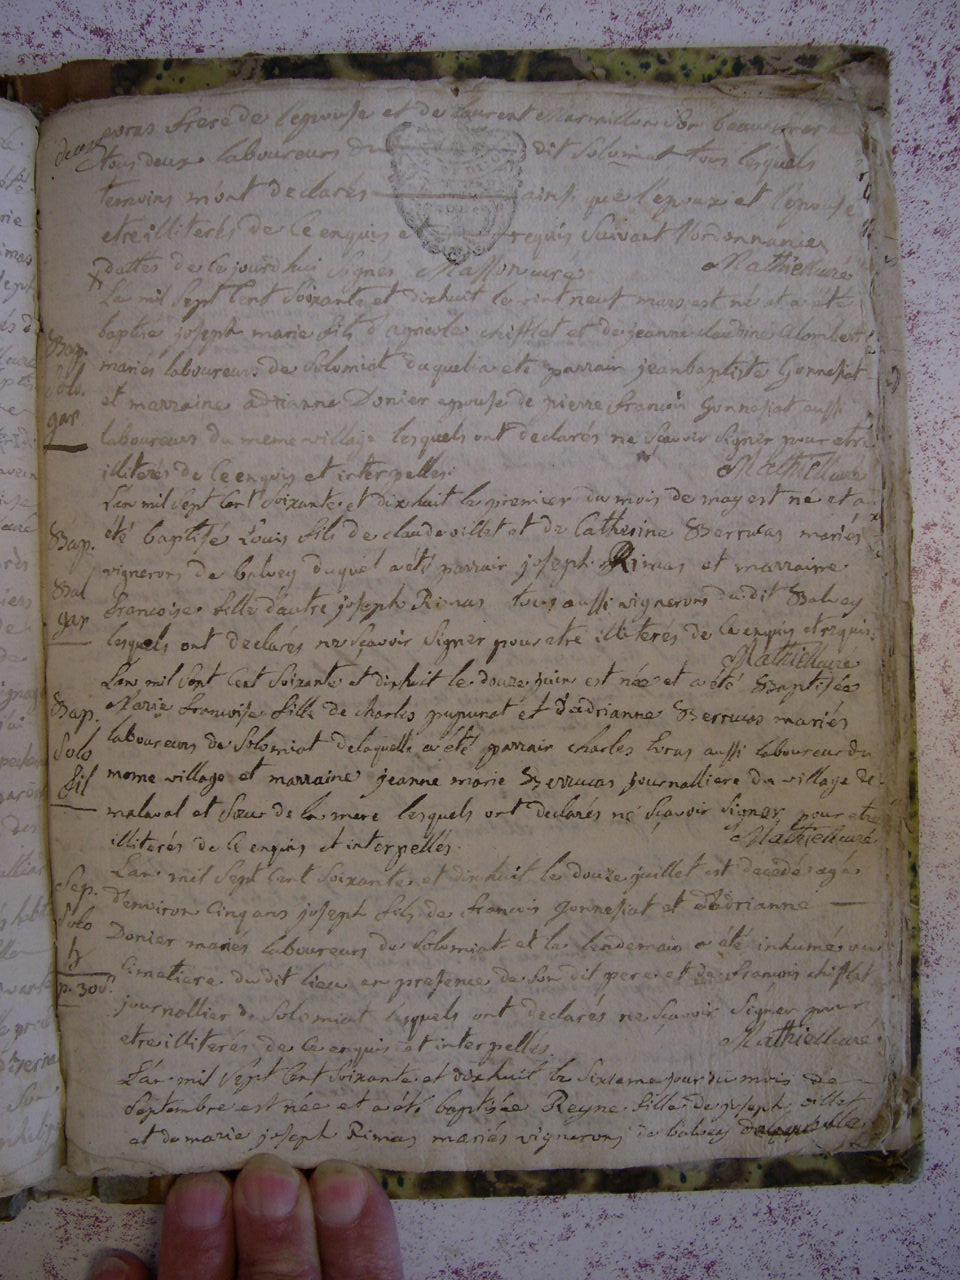 evras frere de lepouse et de laurent marmillon son beau frere
tous deux laboureurs du dit Solomiat tous lesquels
temoins m'ont declarés ainsi que lepoux et lépouse
etre illiterés de ce enquis et requis suivant l'ordonnance
dattes de ce jourdhui signés Masson curé Mathieu curé
L'an mil sept cent soixante et dixhuit le vint neuf mars est né et a été
Bap. baptisé joseph marie fils d'agricole chifflet et de jeanne claudine alombert
Solo. mariés laboureurs de Solomiat duquel a eté parrain jean baptiste Gonnessiat
gar et marraine adrianne Donier epouse de pierre francois Gonnessiat aussi
laboureurs du meme village lesquels ont declarés ne sçavoir signer pour etre
illiterés de ce enquis et interpellés. Mathieu curé
L'an mil sept cent soixante et dixhuit le premier du mois de may est né et a
Bap. été baptisé Louis fils de claude villet et de Catherine Berrucas mariés
vignerons de balvey duquel a été parrain joseph Rimas et marraine
Bal francoise fille d'autre joseph Rimas tous aussi vignerons du dit Balvey
gar lesquels ont declarés ne sçavoir signer pour etre illiterés de ce enquis et requis.
Mathieu curé
L'an mil sept cent soixante et dixhuit le douze juin est née et a été Baptisée
Bap. Marie francoise fille de charles pupunat et d'adrianne Berrucas mariés
Solo laboureurs de Solomiat de laquelle a été parrain charles Evras aussi laboureur du
fil meme village et marraine jeanne marie Berrucas journalliere du village de
malaval et sœur de la mere lesquels ont declarés ne sçavoir signer pour etre
illiterés de ce enquis et interpellés. Mathieu curé
L'an mil sept cent soixante et dixhuit le douze juillet est decedé agés
Sep. d'environ cinq ans joseph fils de francois gonnessiat et d'adrianne
Solo Donier mariés laboureurs de Solomiat et le lendemain a été inhumé au
cimetiere du dit lieu en presence de son dit pere et de francois chifflet
journallier de Solomiat lesquels ont declarés ne sçavoir signer pour
etre illiterés de ce enquis et interpellés Mathieu curé
L'an mil sept cent soixante et dixhuit le sixieme jour du mois de
Septembre est née et a été baptisée Reyne fille de joseph villet
et de marie joseph Rimas mariés vignerons de balvey de laquelle